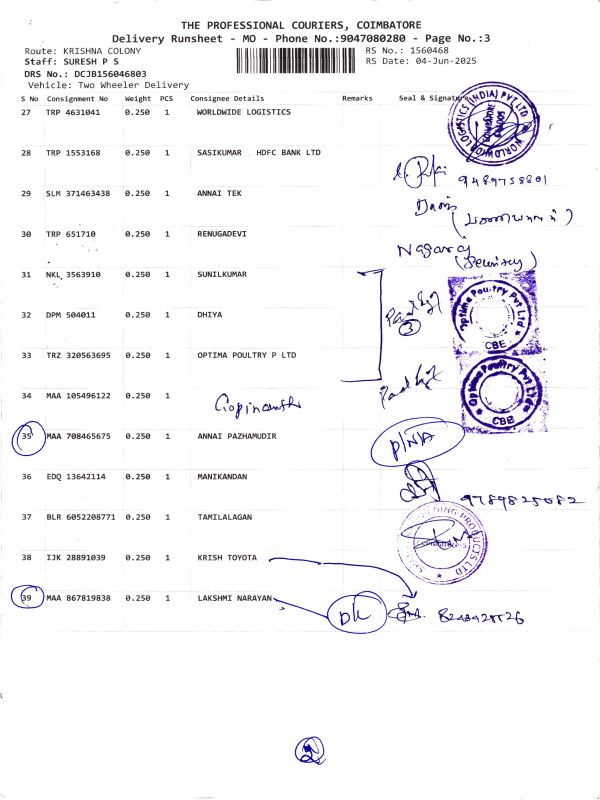 THE PROFESSIONAL COURIERS, COIMBATORE
Delivery Runsheet - MO - Phone No.:9047080280 - Page No.:3
Route: KRISHNA COLONY RS No.: 1560468
Staff: SURESH P S RS Date: 04-Jun-2025
DRS No.: DCJB156046803
Vehicle: Two Wheeler Delivery
S No Consignment No Weight PCS Consignee Details Remarks Seal & Signature
27 TRP 4631041 0.250 1 WORLDWIDE LOGISTICS
WORLDWIDE LOGISTICS (INDIA) PVT LTD
28 TRP 1553168 0.250 1 SASIKUMAR HDFC BANK LTD
9489758801
29 SLM 371463438 0.250 1 ANNAI TEK
30 TRP 651710 0.250 1 RENUGADEVI
Nagaraj
(Security)
31 NKL 3563910 0.250 1 SUNILKUMAR
Optima Poultry Pvt Ltd
CBE
32 DPM 504011 0.250 1 DHIYA
3
33 TRZ 320563695 0.250 1 OPTIMA POULTRY P LTD
34 MAA 105496122 0.250 1 Gopinanth
Optima Poultry Pvt Ltd
CBE
35 MAA 708465675 0.250 1 ANNAI PAZHAMUDIR P/N/A
36 EDQ 13642114 0.250 1 MANIKANDAN
9789825082
37 BLR 6052208771 0.250 1 TAMILALAGAN
38 IJK 28891039 0.250 1 KRISH TOYOTA
39 MAA 867819838 0.250 1 LAKSHMI NARAYAN DL